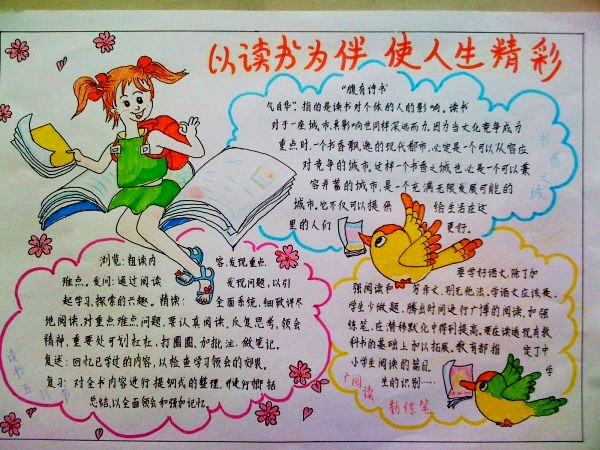 以读书为伴 使人生精彩
"腹有诗书
气自华",指的是读书对个体的人的影响。读书
对于一座城市,其影响也同样深远而力。因为当文化竞争成为
重点时,一个书香飘逸的现代都市,必定是一个可以从容应
对竞争的城市。这样一个书香之城也必是一个可以兼
容并蓄的城市,是一个充满无限发展可能的
城市。它不仅可以提供 给生活在这
里的人们 更好。
书香之城
浏览:粗读内 容,发现重点
难点。发问:通过阅读 发现问题,以引
起学习、探索的兴趣。精读: 全面系统,细致详尽
地阅读,对重点难点问题,要认真阅读,反复思考,领会
精神,重要处可划杠杠,打圈圈,加批注,做笔记。
复述:回忆已学过的内容,以检查学习领会的效果。
复习:对全本内容进行提纲式的整理,并进行概括
总结,以全面领会和强加记忆。
读书五环节
要学好语文,除了加
强阅读和 写作文,别无他法。学语文应该是,
学生少做题,腾出时间进行广博的阅读,加强
练笔,在潜移默化中得到提高。要在读透现有教
科书的基础上加以拓展。教育部指 定了中
小学生阅读的篇目。 学
生的识别……
广阅读
勤练笔